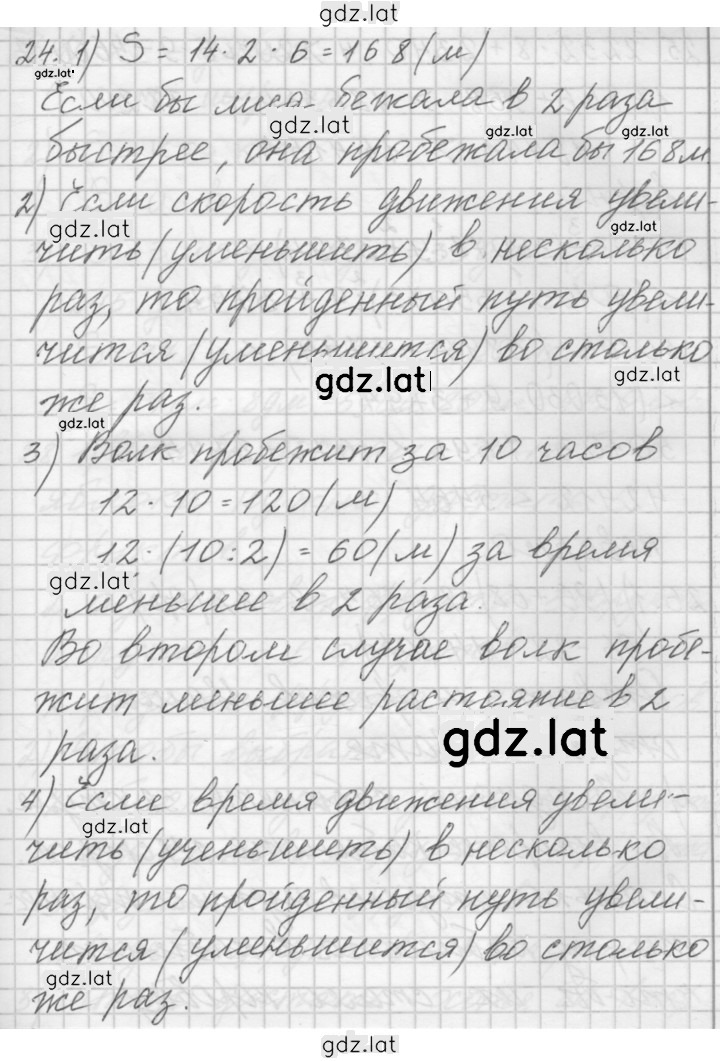 gdz.lat
24. 1) S = 14 · 2 · 6 = 168 (м)
gdz.lat
Если бы лиса бежала в 2 раза
gdz.lat
gdz.lat
gdz.lat
быстрее, она пробежала бы 168 м
2) Если скорость движения увели-
чить (уменьшить) в несколько
раз, то пройденный путь увели-
чится (уменьшится) во столько
gdz.lat
gdz.lat
же раз.
gdz.lat
3) Волк пробежит за 10 часов
12 · 10 = 120 (м)
12 · (10 : 2) = 60 (м) за время
gdz.lat
меньшее в 2 раза.
Во втором случае волк пробе-
жит меньшее растояние в 2
gdz.lat
раза.
4) Если время движения увели-
gdz.lat
чить (ученьшить) в несколько
раз, то пройденный путь увели-
чится (уменьшится) во столько
gdz.lat
же раз.
gdz.lat